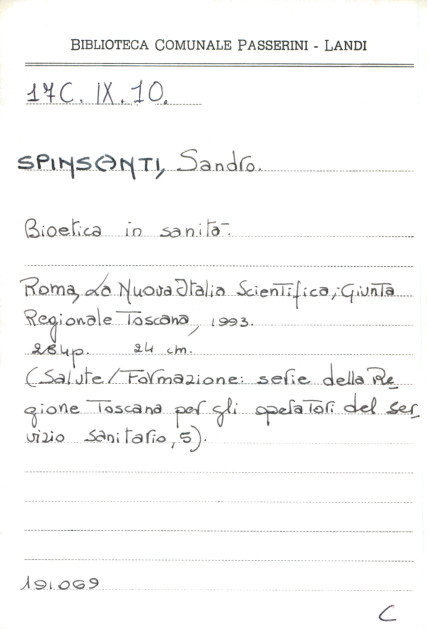 BIBLIOTECA COMUNALE PASSERINI - LANDI
17C. IX. 10.
SPINSANTI, Sandro.
Bioetica in sanità.
Roma, La Nuova Italia Scientifica; Giunta
Regionale Toscana, 1993.
284p. 24 cm.
(Salute/Formazione: serie della Re-
gione Toscana per gli operatori del ser-
vizio sanitario, 5).
191.069
C